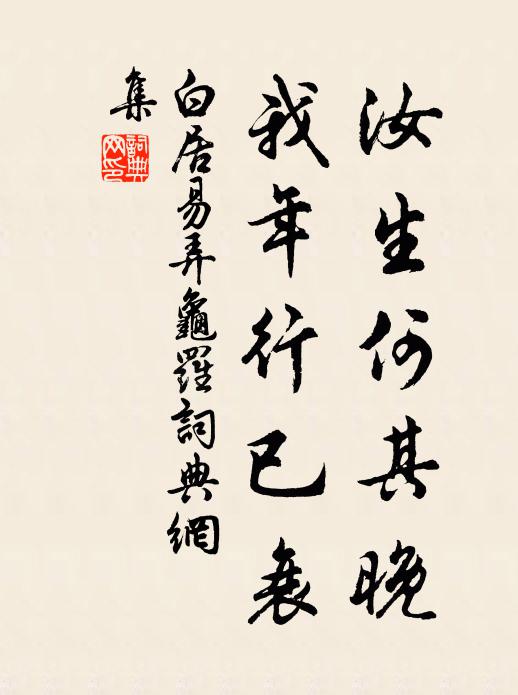 汝生何其晚
我年行已衰
白居易弄龜羅詞典網
集
詞典
网印